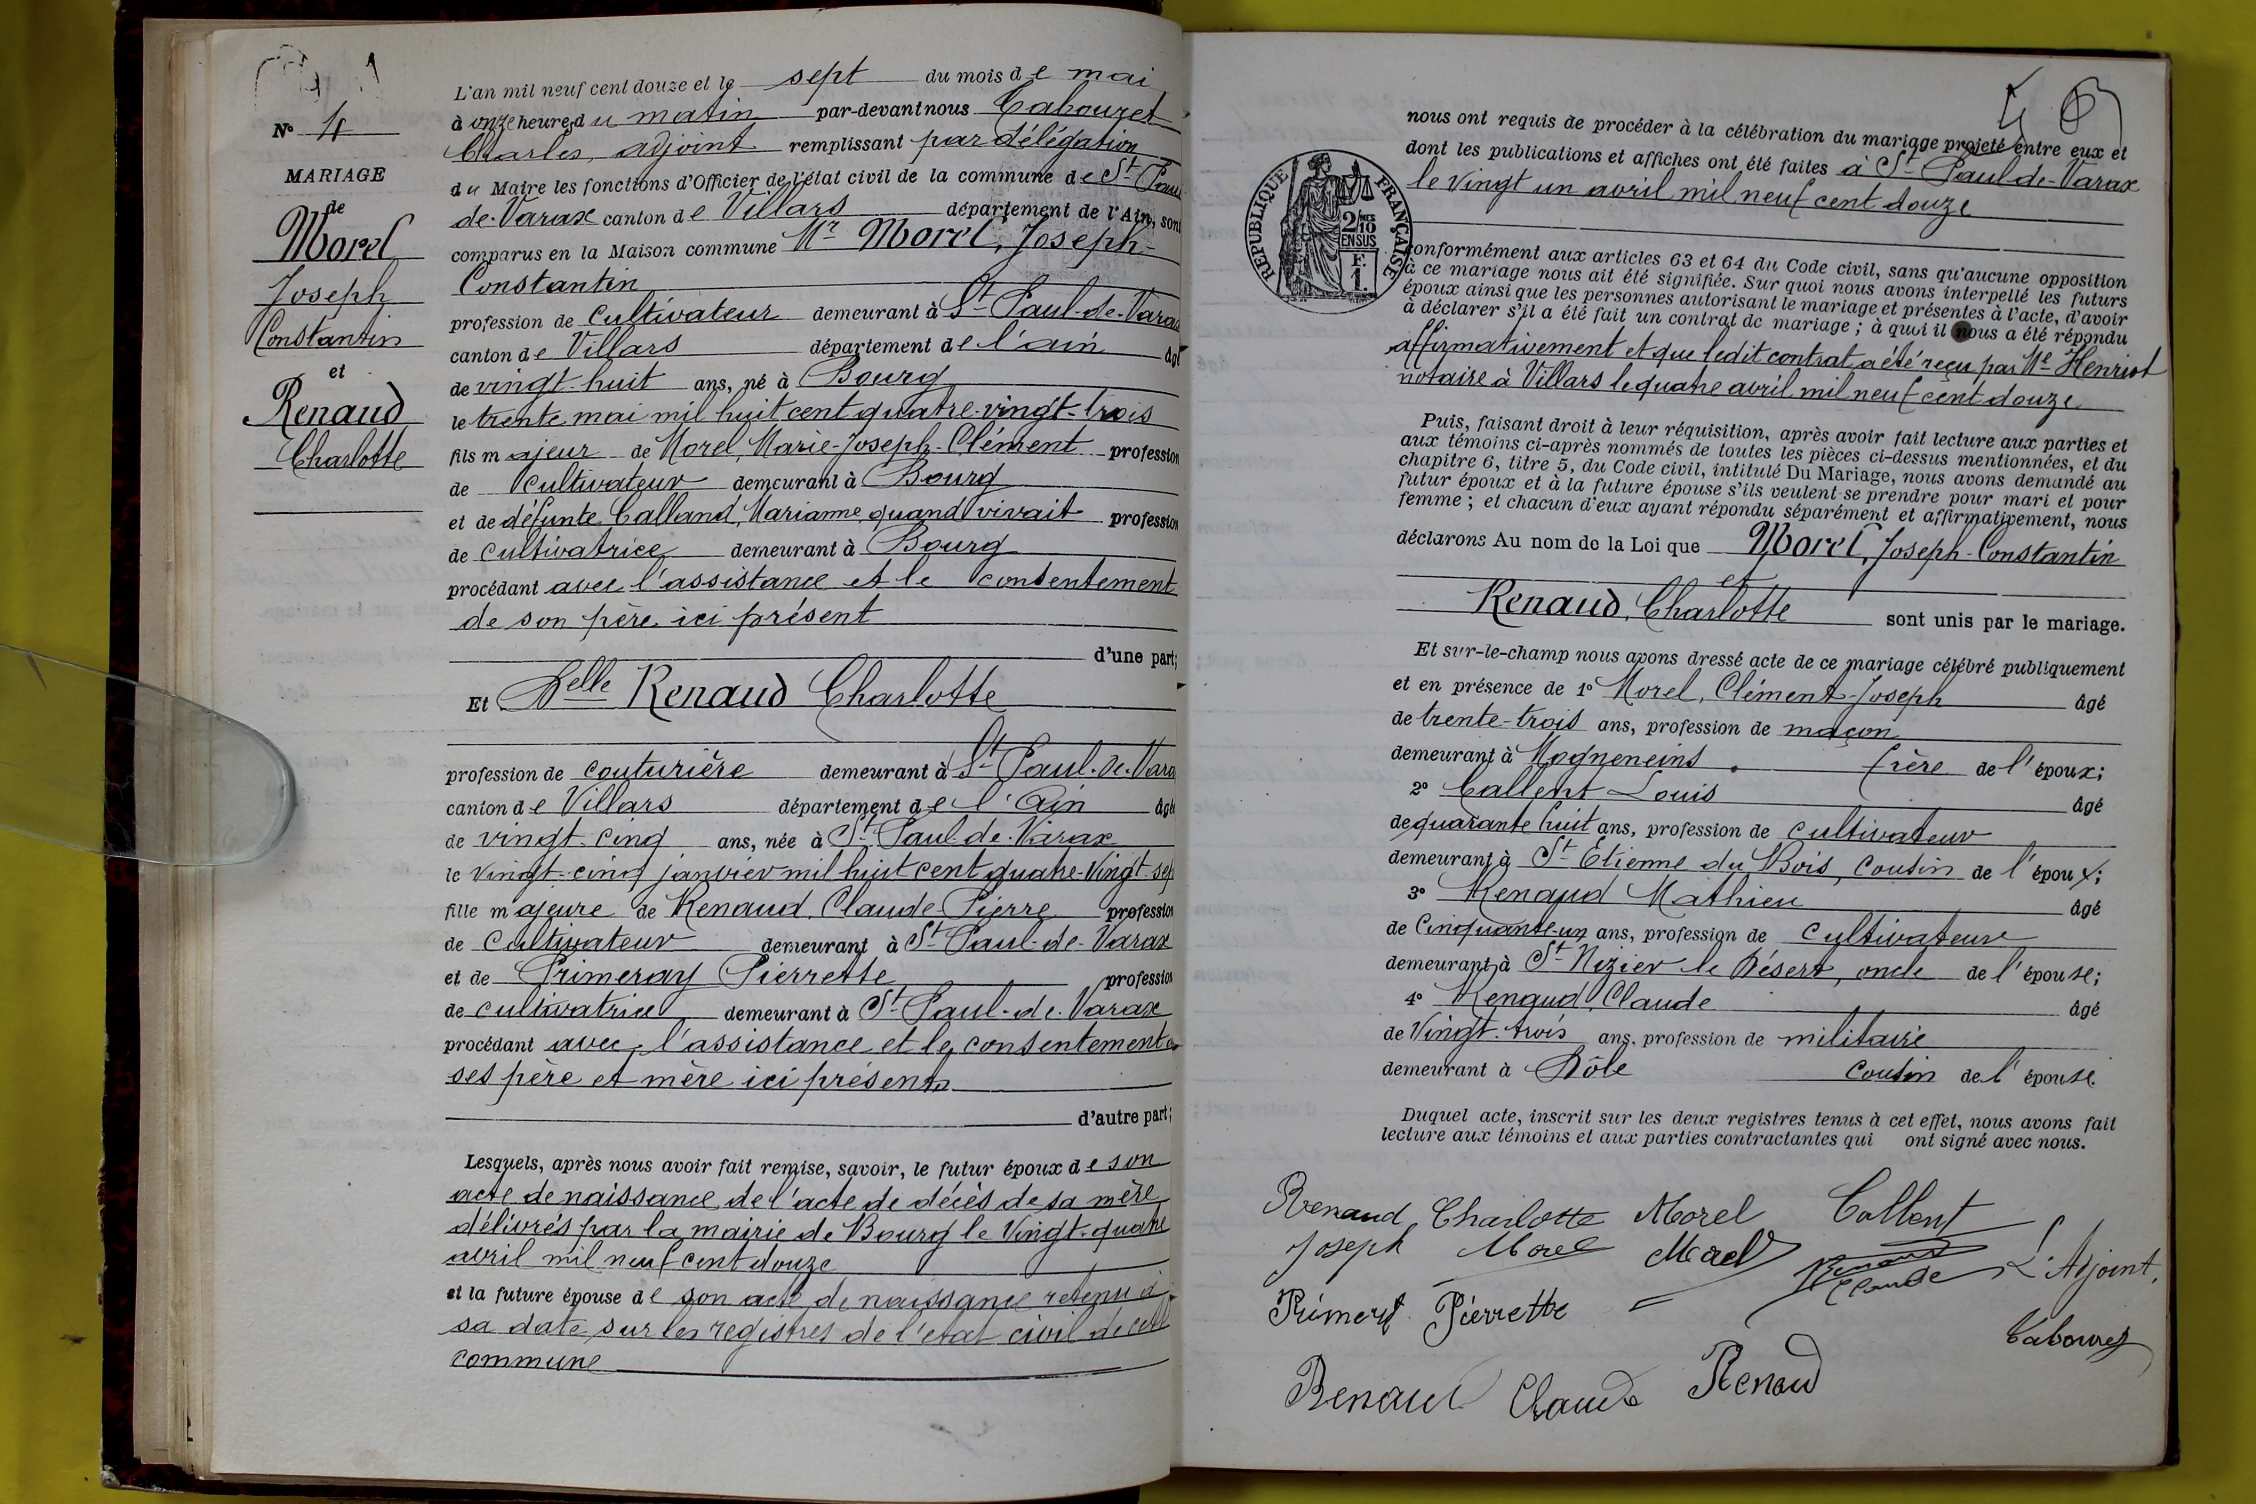 N° 4
MARIAGE
de
Morel
Joseph
Constantin
et
Renaud
Charlotte
L'an mil neuf cent douze et le sept du mois de mai
à onze heures du matin par-devant nous Cabouret
Charles, adjoint remplissant par délégation
du Maire les fonctions d'Officier de l'état civil de la commune de St Paul
de-Varax canton de Villars département de l'Ain, sont
comparus en la Maison commune Mr Morel, Joseph-
Constantin
profession de cultivateur demeurant à St Paul-de-Varax
canton de Villars département de l'ain âgé
de vingt-huit ans, né à Bourg
le trente mai mil huit cent quatre-vingt-trois
fils majeur de Morel, Marie-Joseph-Clément profession
de cultivateur demeurant à Bourg
et de défunte Calland, Marianne quand vivait profession
de cultivatrice demeurant à Bourg
procédant avec l'assistance et le consentement
de son père ici présent
d'une part;
Et Delle Renaud Charlotte
profession de couturière demeurant à St Paul-de-Vara
canton de Villars département de l'Ain âgé
de vingt-cinq ans, née à St Paul-de-Varax
le vingt-cinq janvier mil huit cent quatre-vingt-sep
fille majeure de Renaud, Claude-Pierre profession
de cultivateur demeurant à St Paul-de-Varax
et de Primeray Pierrette profession
de cultivatrice demeurant à St Paul-de-Varax
procédant avec l'assistance et le consentement de
ses père et mère ici présents
d'autre part;
Lesquels, après nous avoir fait remise, savoir, le futur époux de son
acte de naissance de l'acte de décès de sa mère
délivrés par la mairie de Bourg le vingt-quatre
avril mil neuf cent douze
et la future épouse de son acte de naissance retenu à
sa date sur les registres de l'état civil de cette
commune
nous ont requis de procéder à la célébration du mariage projeté entre eux et
dont les publications et affiches ont été faites à St Paul-de-Varax
le vingt un avril mil neuf cent douze
RÉPUBLIQUE FRANÇAISE
2/10
EN SUS
F.
1.
conformément aux articles 63 et 64 du Code civil, sans qu'aucune opposition
à ce mariage nous ait été signifiée. Sur quoi nous avons interpellé les futurs
époux ainsi que les personnes autorisant le mariage et présentes à l'acte, d'avoir
à déclarer s'il a été fait un contrat de mariage ; à quoi il nous a été répondu
affirmativement et que ledit contrat a été reçu par Me Henriot
notaire à Villars le quatre avril mil neuf cent douze
Puis, faisant droit à leur réquisition, après avoir fait lecture aux parties et
aux témoins ci-après nommés de toutes les pièces ci-dessus mentionnées, et du
chapitre 6, titre 5, du Code civil, intitulé Du Mariage, nous avons demandé au
futur époux et à la future épouse s'ils veulent se prendre pour mari et pour
femme ; et chacun d'eux ayant répondu séparément et affirmativement, nous
déclarons Au nom de la Loi que Morel, Joseph-Constantin
et
Renaud, Charlotte sont unis par le mariage.
Et sur-le-champ nous avons dressé acte de ce mariage célébré publiquement
et en présence de 1° Morel, Clément-Joseph âgé
de trente-trois ans, profession de maçon
demeurant à Mogneneins frère de l'époux;
2° Callent Louis âgé
de quarante huit ans, profession de cultivateur
demeurant à St Etienne du Bois, cousin de l'époux;
3° Renaud Mathieu âgé
de cinquante-un ans, profession de cultivateur
demeurant à St Nizier le Désert, oncle de l'épouse;
4° Renaud, Claude âgé
de vingt-trois ans, profession de militaire
demeurant à Dôle cousin de l'épouse.
Duquel acte, inscrit sur les deux registres tenus à cet effet, nous avons fait
lecture aux témoins et aux parties contractantes qui ont signé avec nous.
Renaud Charlotte Morel Callent
Joseph Morel Morel Renaud Claude L'Adjoint,
Pierrette
Cabouret
Renaud Claude Renaud